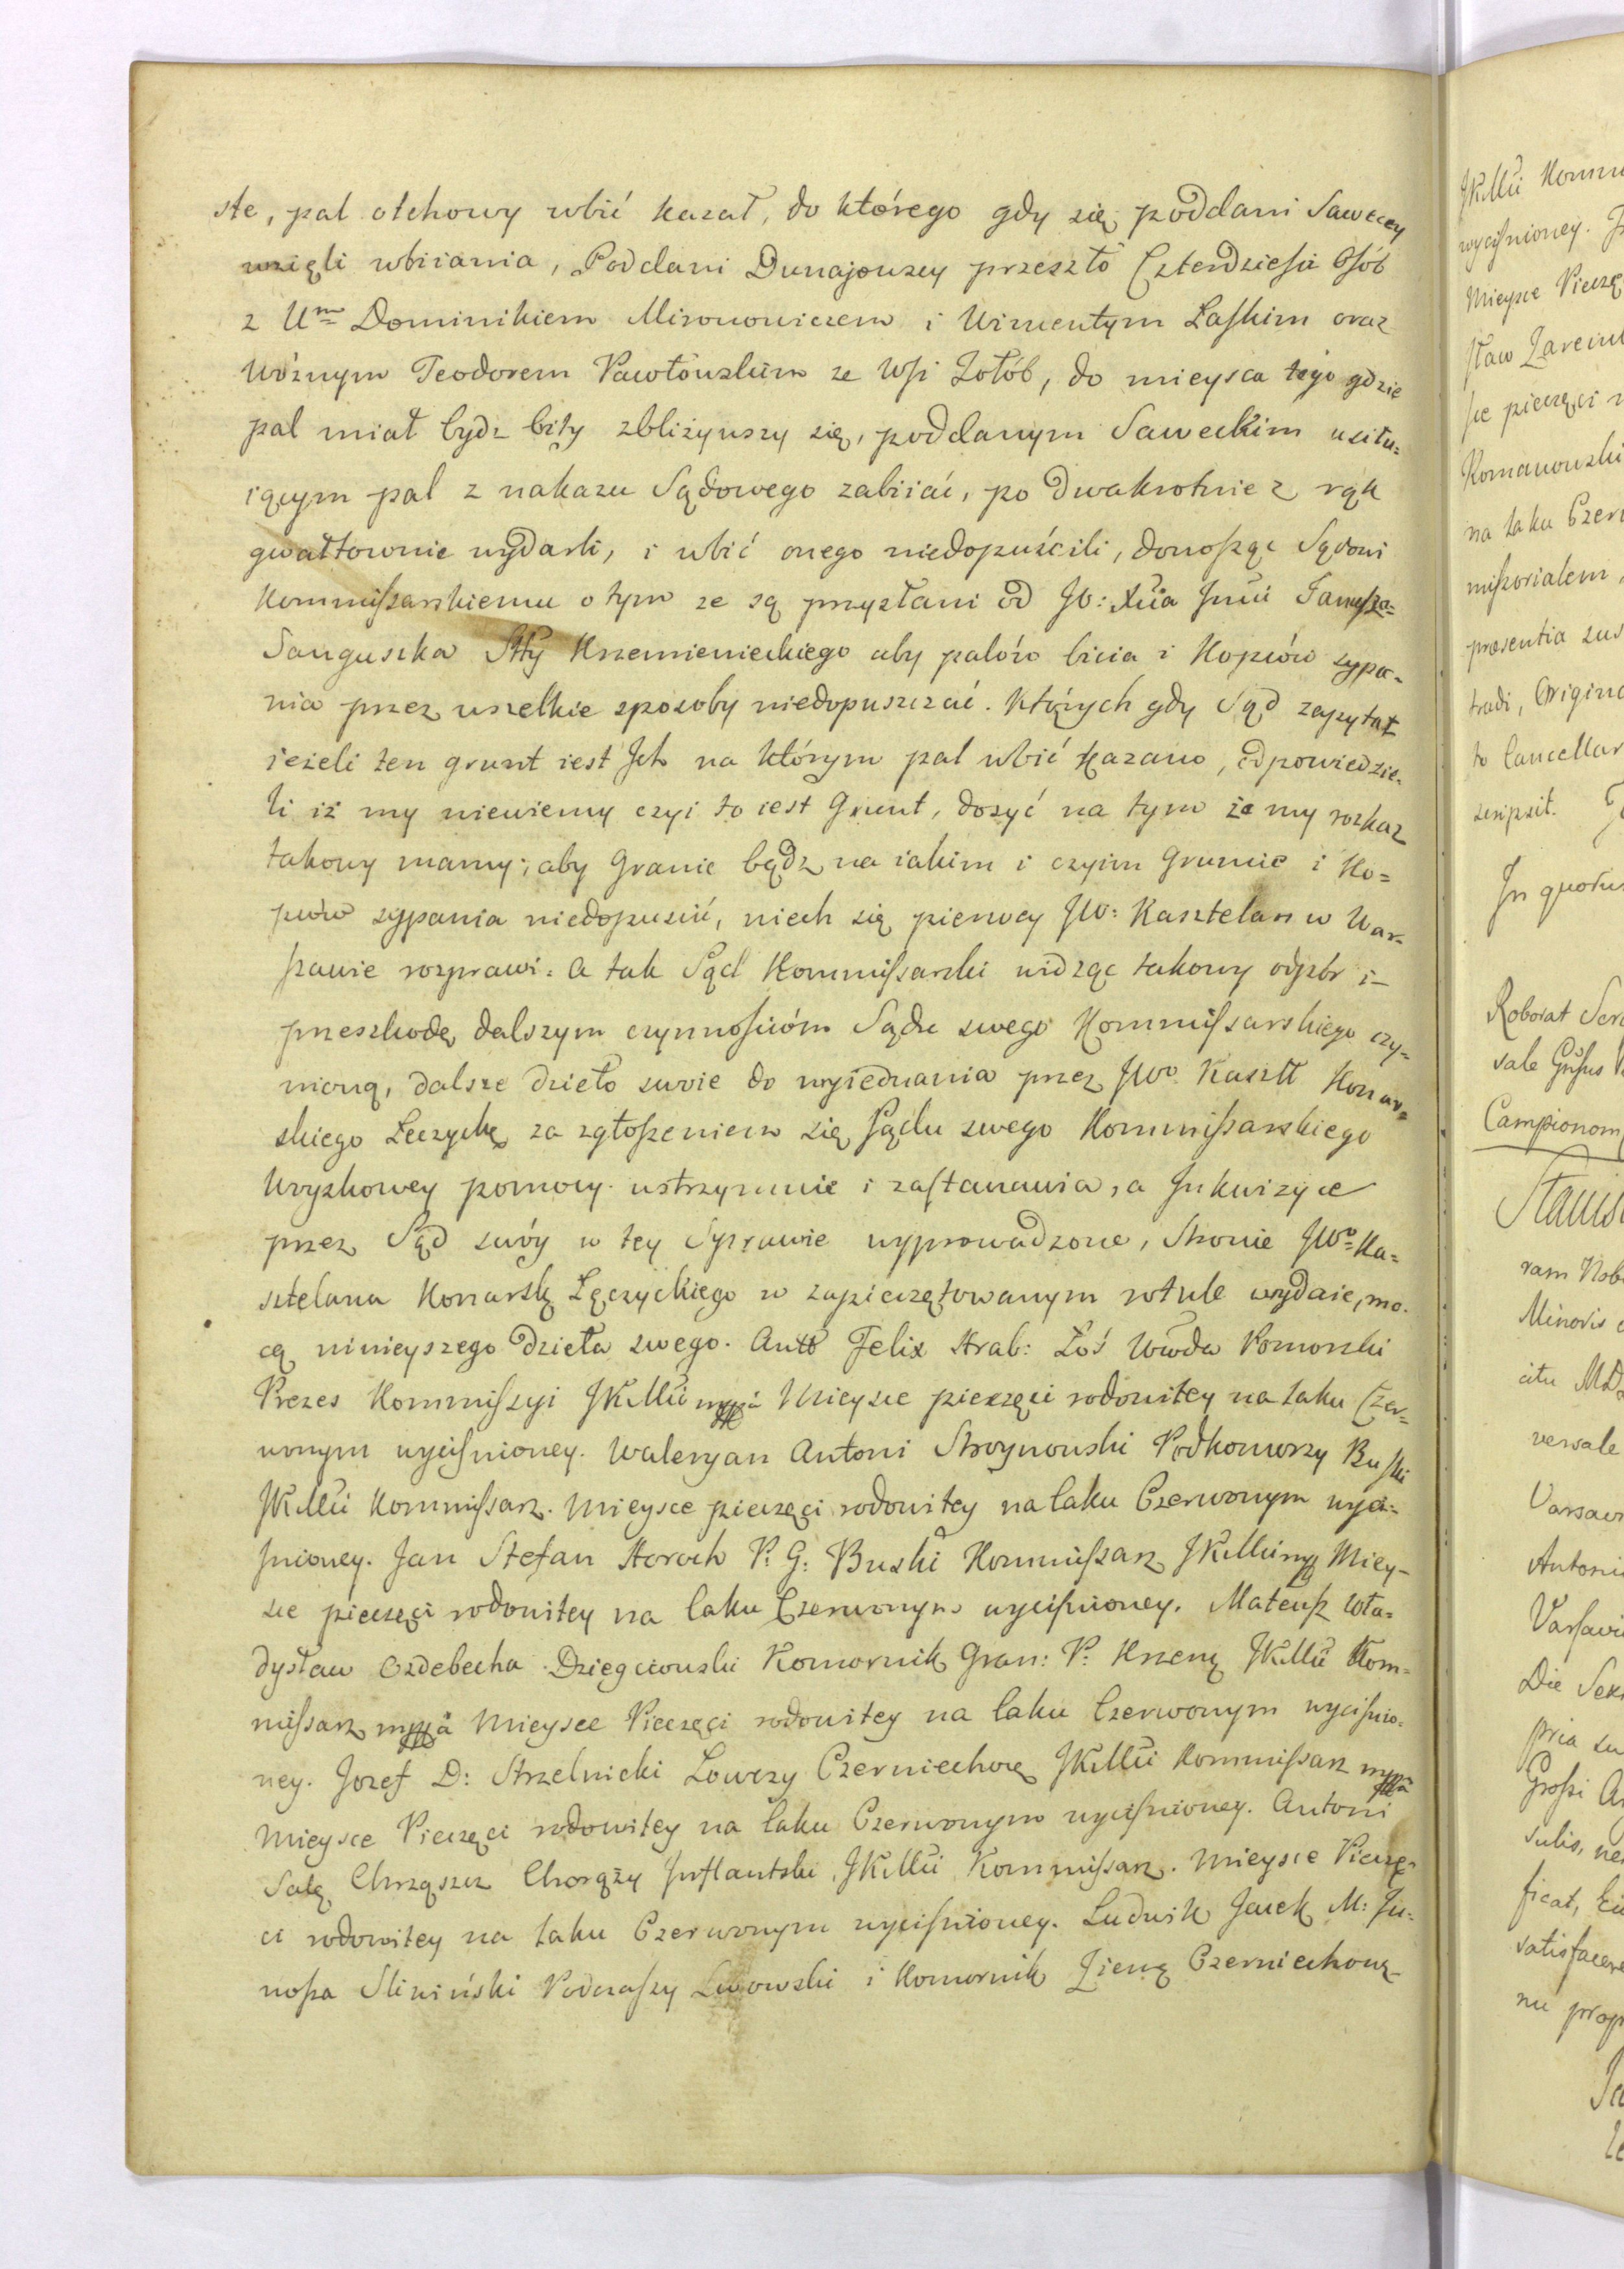 ste, pal olchowy wbić kazał, do którego gdy się poddani Saweccy
wzięli wbiiania, Poddani Dunajowscy przeszło Czterdzieści Osób
z Um Dominikiem Mironowiczem i Wincentym Łaskim oraz
Woznym Teodorem Pawłowskim ze Wsi Zołób, do mieysca tego gdzie
pal miał bydz bity zbliżywszy się, poddanym Saweckim usiłu=
iącym pal z nakazu Sądowego zabiiać, po dwakrotnie z rąk
gwałtownie wydarli, i wbić onego niedopuścili, donosząc Sądowi
Kommissarskiemu o tym ze są przysłani od JO: Xcia Jmci Janusza
Sanguszka Stty Krzemienieckiego aby palów bicia i Kopców sypa=
nia przez wszelkie sposoby niedopuszczać. Których gdy Sąd zapytał
ieżeli ten grunt iest Ich na którym pal wbić kazano, odpowiedzie=
li iż my niewiemy czyi to iest Grunt, dosyć na tym że my rozkaz
takowy mamy; aby Granic bądz na iakim i czyim Gruncie i Ko=
pców sypania niedopuścić, niech się pierwey JW: Kasztelan w War=
szawie rozprawi: A tak Sąd Kommissarski widząc takowy odpór i
przeszkodę dalszym czynnościóm Sądu swego Kommissarskiego czy=
nioną, dalsze dzieło swoie do wyiednania przez JWo Kasztt Konar=
skiego Łęczyckę za zgłoszeniem się Sądu swego Kommissarskiego
Woyskowey pomocy wstrzymuie i zastanawia, a Inkwizycye
przez Sąd swóy w tey Sprawie wyprowadzone, Stronie JWo Ka=
sztelana Konarskę Łęczyckiego w zapieczętowanym rotule wydaie, mo=
cą ninieyszego dzieła swego. Antt Felix Hrab: Łoś Wwda Pomorski
Prezes Kommissyi JKMci mppa Mieysce pieczęci rodowitey na laku Czer=
wonym wycisnioney. Waleryan Antoni Stroynowski Podkomorzy Buski
JKMci Kommissarz. Mieysce pieczęci rodowitey na laku Czerwonym wyci=
snioney. Jan Stefan Horoch P. G: Buski Kommissarz JKMci mp Miey=
sce pieczęci rodowitey na laku Czerwonym wycisnioney. Mateusz Wła=
dysław Ozdebecha Dziegciowski Komornik Gran: P: Krzemę JKMci Kom=
missarz mppa Mieysce Pieczęci rodowitey na laku Czerwonym wycisnio=
ney. Jozef D: Strzelnicki Łowczy Czerniechowę JKMci Kommissarz mppa
Mieysce Pieczęci rodowitey na laku Czerwonym wycisnioney. Antoni
Salę Chrząszcz Chorąży Inflantski JKMci Kommissarz. Mieysce Pieczę=
ci rodowitey na laku Czerwonym wycisnioney. Ludwik Jacek M: Ju=
nosza Sliwiński Podczaszy Lwowski i Komornik Ziemę Czerniechowę